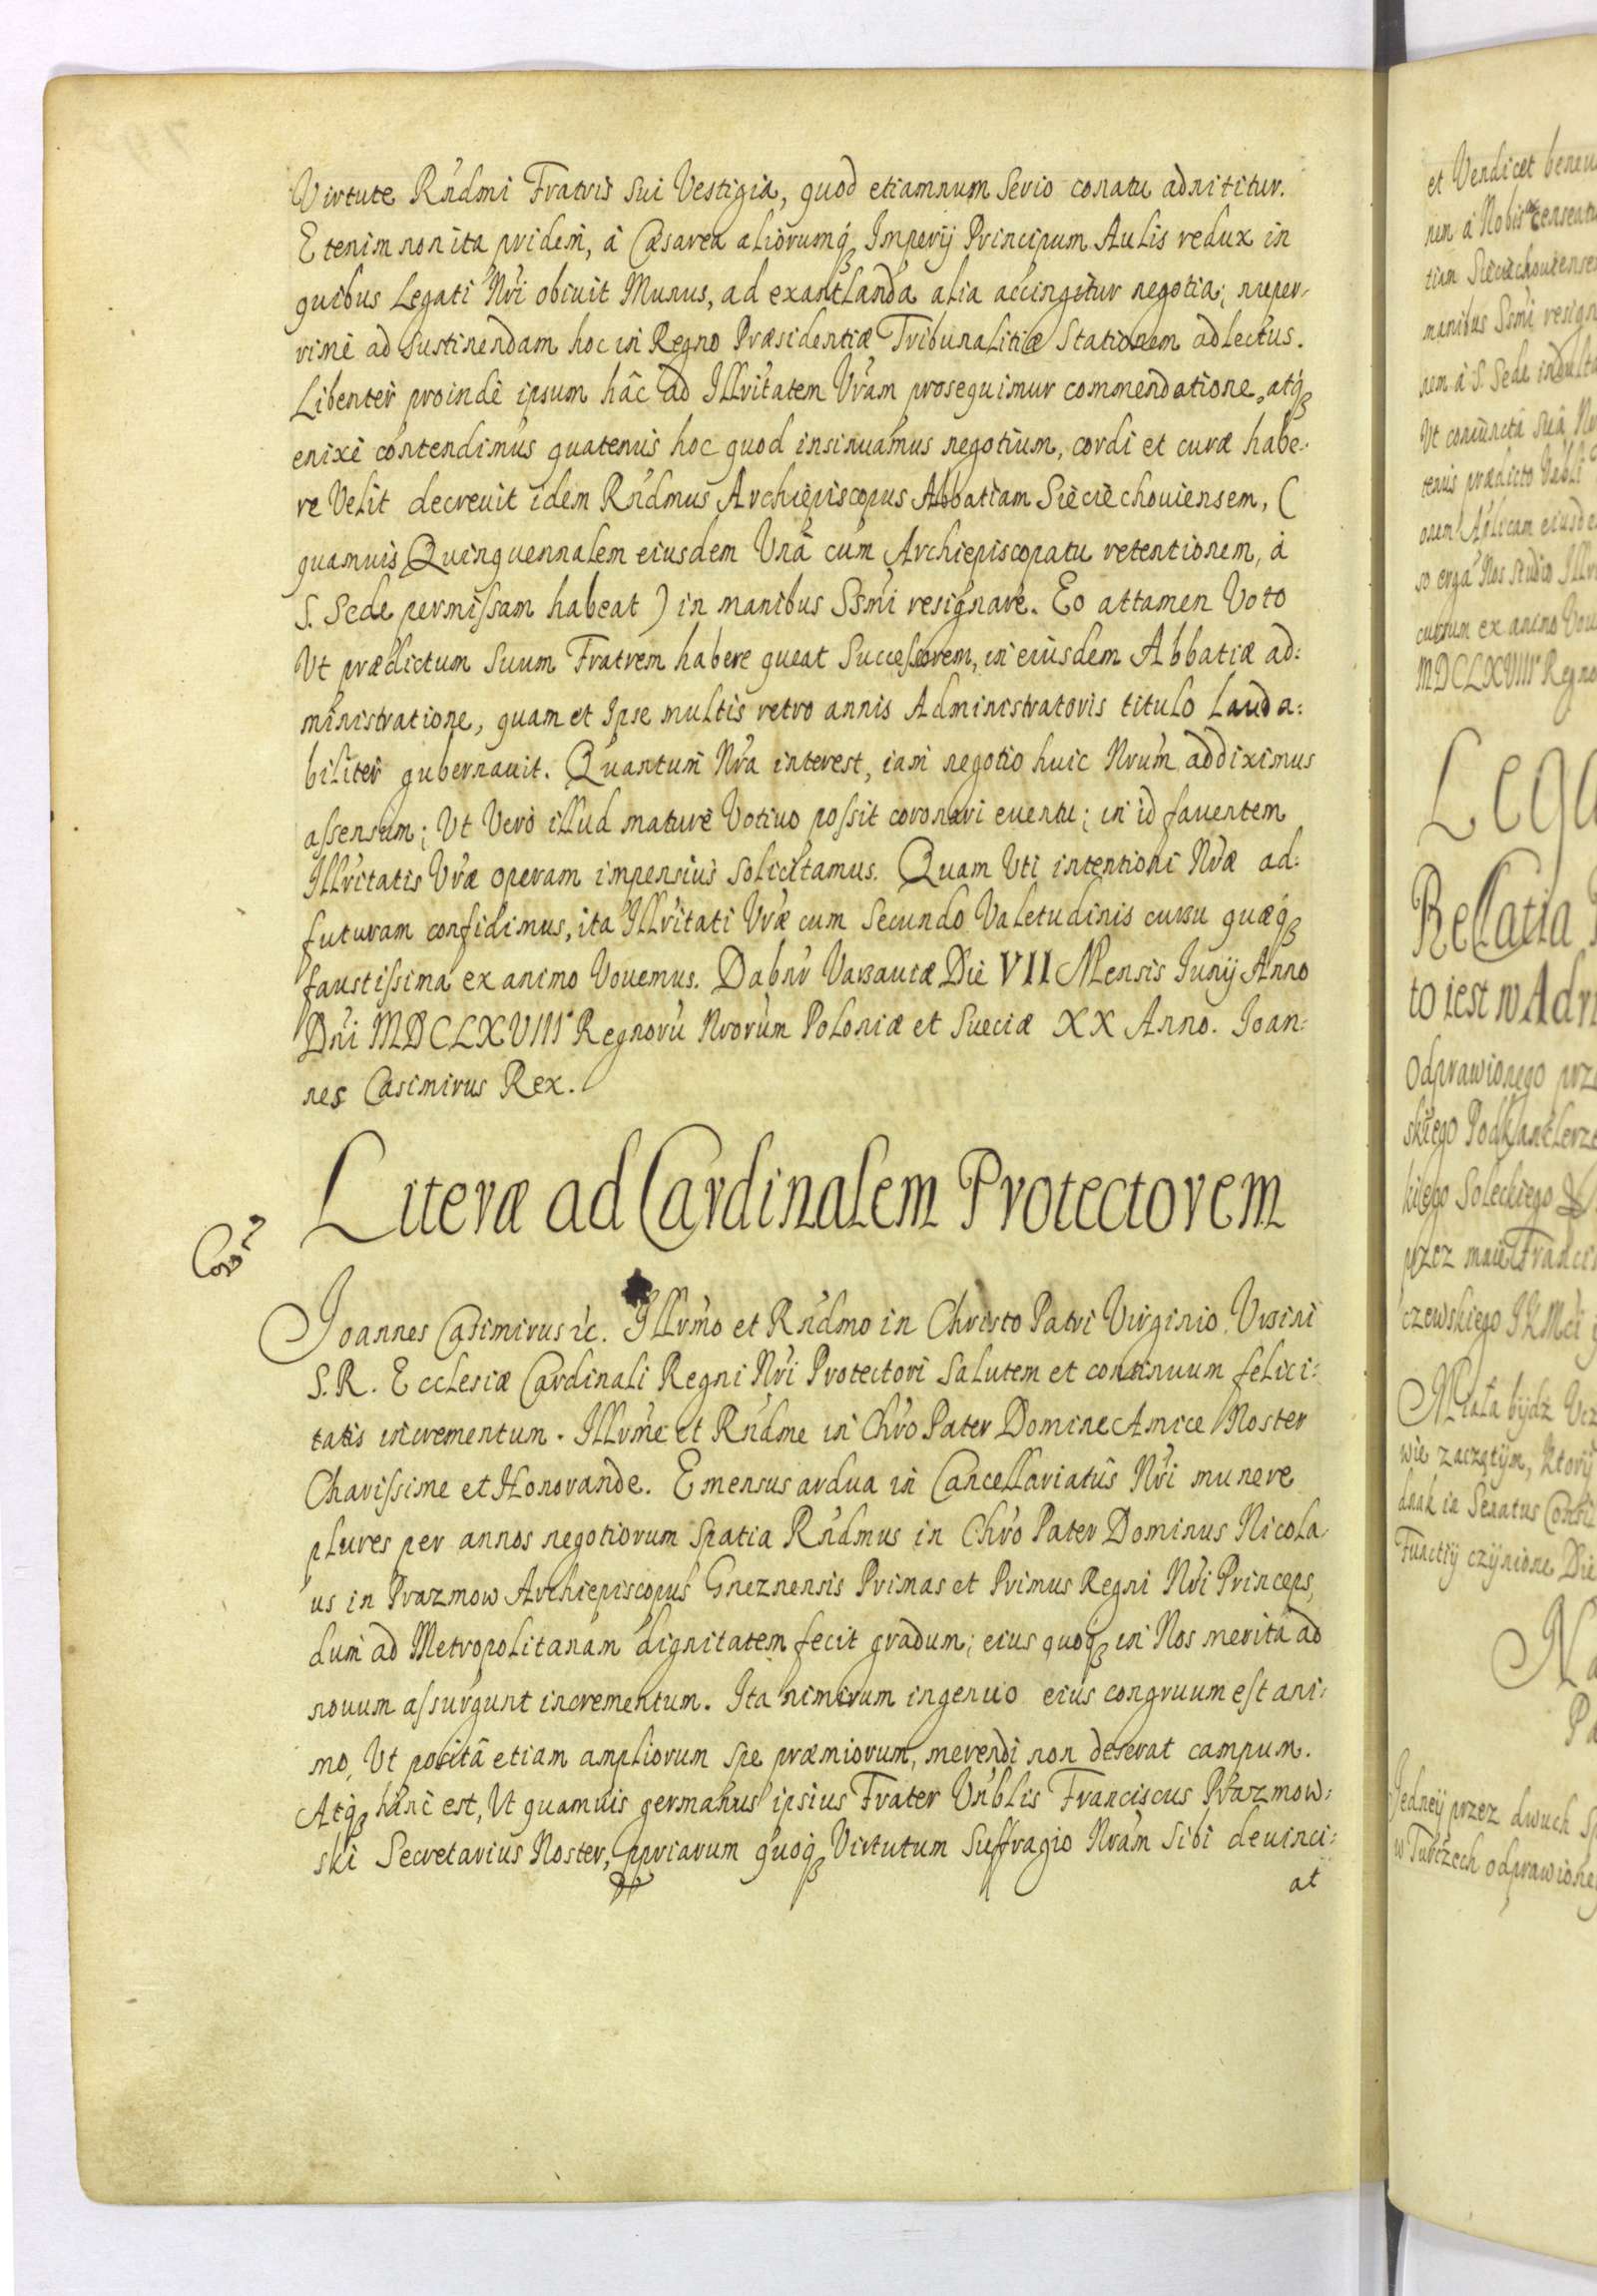 Virtute Rńdmi Fratris sui Vestigia, quod etiamnum serio conatu adnititur.
Etenim non ita pridem, à Cæsarea aliorumq́ꝫ Imperij Principum Aulis redux in
quibus Legati Nŕi obiuit Munus, ad exantlanda alia accingitur negotia; nuper-
rimè ad sustinendam hoc in Regno Præsidentiæ Tribunalitiæ Stationem adlectus.
Libenter proindè ipsum hâc ad Illŕitatem Vŕam prosequimur commendatione, atq́ꝫ
enixè contendimus quatenus hoc quod insinuamus negotium, cordi et curæ habe-
re Velit decreuit idem Rńdmus Archiepiscopus Abbatiam Sieciechouiensem, (
quamuis Quinquennalem eiusdem Vnâ cum Archiepiscopatu retentionem, à
S. Sede permissam habeat ) in manibus Sśmi resignare. Eo attamen Voto
Vt prædictum suum Fratrem habere queat Successorem, in eiusdem Abbatiæ ad:
ministratione, quam et Ipse multis retro annis Administratoris titulo lauda:
biliter gubernauit. Quantum Nŕa interest, iam negotio huic Nŕum addiximus
assensum; Vt Verò illud maturè Votiuo possit coronari euentu; in id fauentem
Illŕitatis Vŕæ operam impensius solicitamus. Quam Vti intentioni Nŕæ ad:
futuram confidimus, ita Illŕitati Vŕæ cum secundo Valetudinis cursu quæq́ꝫ
faustissima ex animo Vouemus. Dabńr Varsauiæ Die VII Mensis Iunij Anno
Dńi MDCLXVIIIº Regnorũ Nŕorum Poloniæ et Sueciæ XX Anno. Ioan:
nes Casimirus Rex.
Literæ ad Cardinalem Protectorem
Joannes Casimirus ꝛc. Illŕmo et Rńdmo in Christo Patri Virginio Vrsini
S. R. Ecclesiæ Cardinali Regni Nŕi Protectori Salutem et continuum felici:
tatis incrementum. Illŕme et Rńdme in Chŕo Pater Domine Amice Noster
Charissime et Honorande. Emensus ardua in Cancellariatûs Nŕi munere
plures per annos negotiorum spatia Rńdmus in Chŕo Pater Dominus Nicola-
us in Prazmow Archiepiscopus Gneznensis Primas et Primus Regni Nŕi Princeps,
dum ad Metropolitanam dignitatem fecit gradum; eius quoq́ꝫ in Nos merita ad
nouum assurgunt incrementum. Ita nimirum ingenuo eius congruum est ani:
mo, Vt positâ etiam ampliorum spe præmiorum, merendi non deserat campum.
Atq́ꝫ hinc est, Vt quamuis germanus ipsius Frater Vńblis Franciscus Prazmow:
ski Secretarius Noster, ppriarum quoq́ꝫ Virtutum Suffragio Nŕam sibi deuinci:
at
et Vendicet beneu
nem à Nobis censeatu
tiam Sieciechouiense
manibus Sśmi resign
nem à S. Sede indulta
Vt coniuncta sua
tenus prædicto
onem Aplicam eiusde
so erga Nos studio Illŕi
cursum ex animo Vou
MDCLXVIIIº Regno
Lega
Rellatia
to iest w Adri
Odprawionego prze
skiego Podkanclerze
kiego Soleckiego
przez mnie Francis
czewskiego IKMći
Miała bydz
wie zaczętym, ktory
dnak in Senatus Consil
Functij czynione Die
Na
Pa
Jedney przez dwuch
w Turczech odprawione